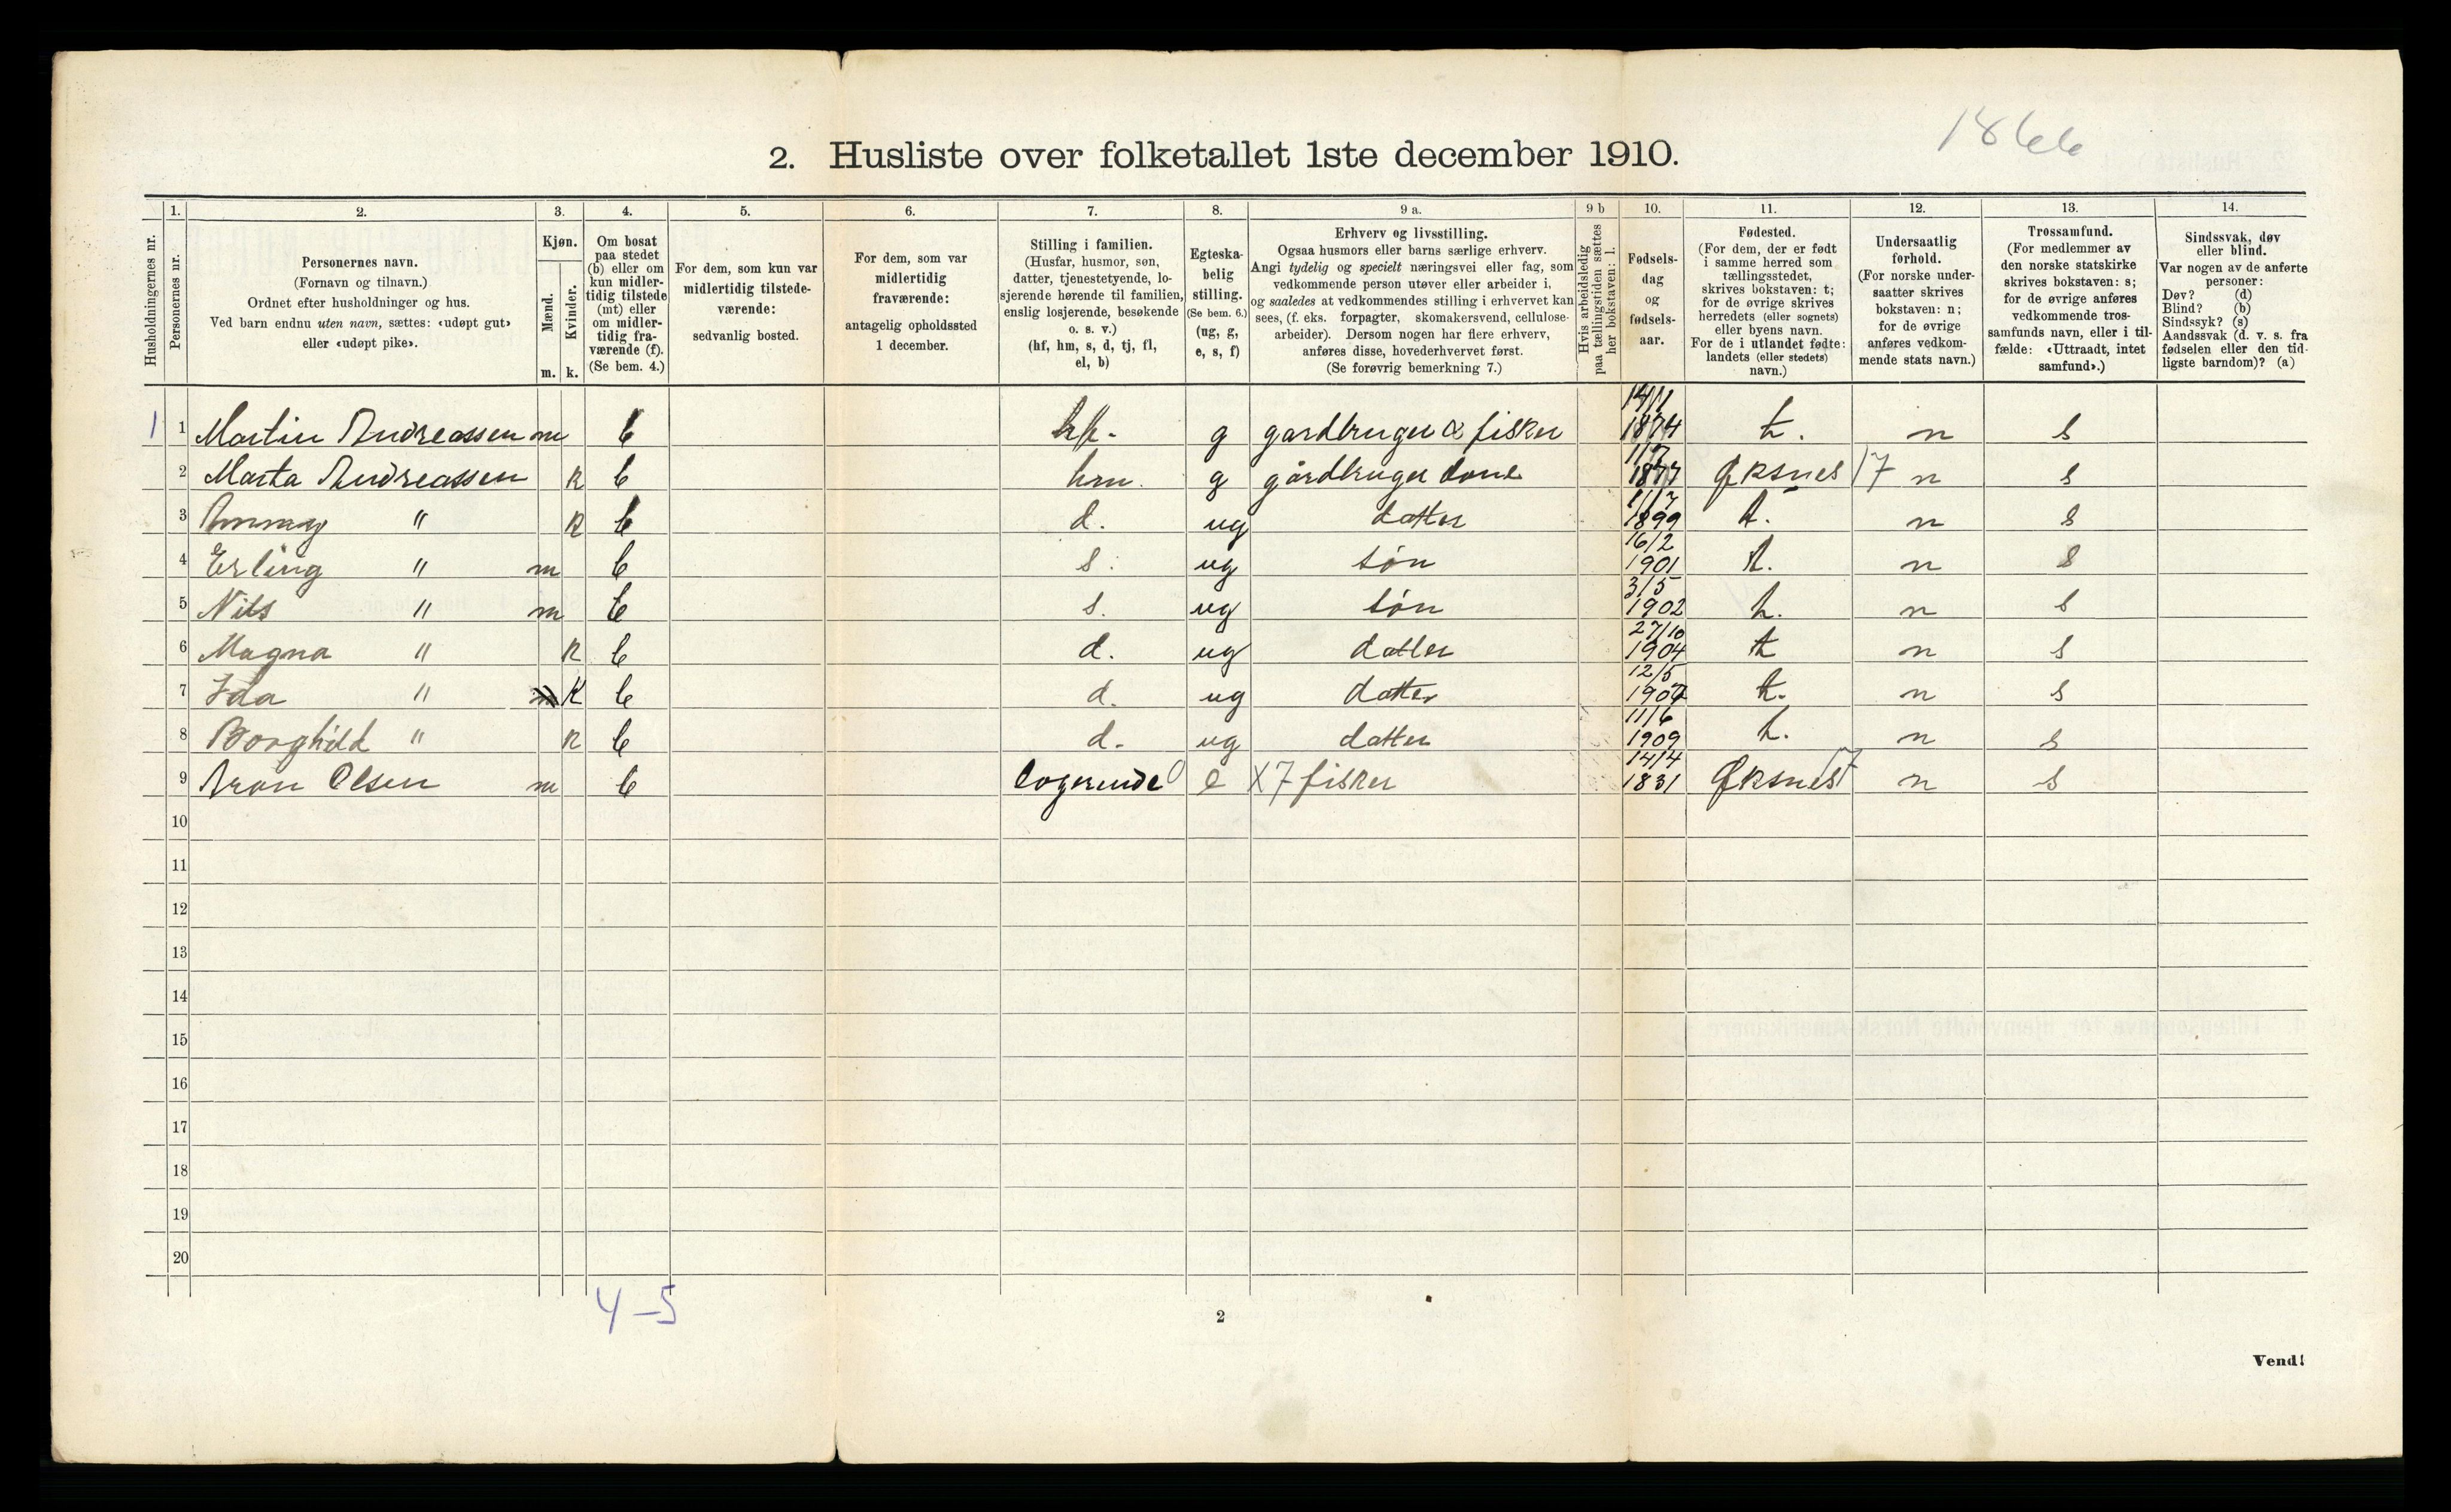 1866
2. Husliste over folketallet 1ste december 1910.
1. 2. 3. 4. 5. 6. 7. 8. 9 a. 9 b 10. 11. 12. 13. 14.
Husholdningernes nr.
Personernes nr.
Personernes navn.
(Fornavn og tilnavn.)
Ordnet efter husholdninger og hus.
Ved barn endnu uten navn, sættes: «udøpt gut»
eller «udøpt pike».
Kjøn.
Mænd.
Kvinder.
m. k.
Om bosat
paa stedet
(b) eller om
kun midler-
tidig tilstede
(mt) eller
om midler-
tidig fra-
værende (f).
(Se bem. 4.)
For dem, som kun var
midlertidig tilstede-
værende:
sedvanlig bosted.
For dem, som var
midlertidig
fraværende:
antagelig opholdssted
1 december.
Stilling i familien.
(Husfar, husmor, søn,
datter, tjenestetyende, lo-
sjerende hørende til familien,
enslig losjerende, besøkende
o. s. v.)
(hf, hm, s, d, tj, fl,
el, b)
Egteska-
belig
stilling.
(Se bem. 6.)
(ug, g,
e, s, f)
Erhverv og livsstilling.
Ogsaa husmors eller barns særlige erhverv.
Angi tydelig og specielt næringsvei eller fag, som
vedkommende person utøver eller arbeider i,
og saaledes at vedkommendes stilling i erhvervet kan
sees, (f. eks. forpagter, skomakersvend, cellulose-
arbeider). Dersom nogen har flere erhverv,
anføres disse, hovederhvervet først.
(Se forøvrig bemerkning 7.)
Hvis arbeidsledig
paa tællingstiden sættes
her bokstaven: l.
Fødsels-
dag
og
fødsels-
aar.
Fødested.
(For dem, der er født
i samme herred som
tællingsstedet,
skrives bokstaven: t;
for de øvrige skrives
herredets (eller sognets)
eller byens navn.
For de i utlandet fødte:
landets (eller stedets)
navn.)
Undersaatlig
forhold.
(For norske under-
saatter skrives
bokstaven: n;
for de øvrige
anføres vedkom-
mende stats navn.)
Trossamfund.
(For medlemmer av
den norske statskirke
skrives bokstaven: s;
for de øvrige anføres
vedkommende tros-
samfunds navn, eller i til-
fælde: «Uttraadt, intet
samfund».)
Sindssvak, døv
eller blind.
Var nogen av de anførte
personer:
Døv? (d)
Blind? (b)
Sindssyk? (s)
Aandssvak (d. v. s. fra
fødselen eller den tid-
ligste barndom)? (a)
1 1 Martin Andreassen m b hf. g gardbruger & fisker 1874 t. n s
2 Marta Andreassen k b hm. g gårdbruger kone 1877 Øksnes 17 n s
3 " k b d. ug datter 1/7 1899 t. n s
4 Erling " m b s. ug søn 16/2 1901 t. n s
5 Nils " m b s. ug søn 3/5 1902 t. n s
6 Magna " k b d. ug datter 27/10 1904 t n s
7 Ida " k b d. ug datter 12/5 1907 t. n s
8 Borghild " k b d. ug datter 11/6 1909 t. n s
9 Aron Olsen m b logerende e X7 fisker 14/4 1831 Øksnes 17 n s
10
11
12
13
14
15
16
17
18
19
20
4-5
2
Vend!